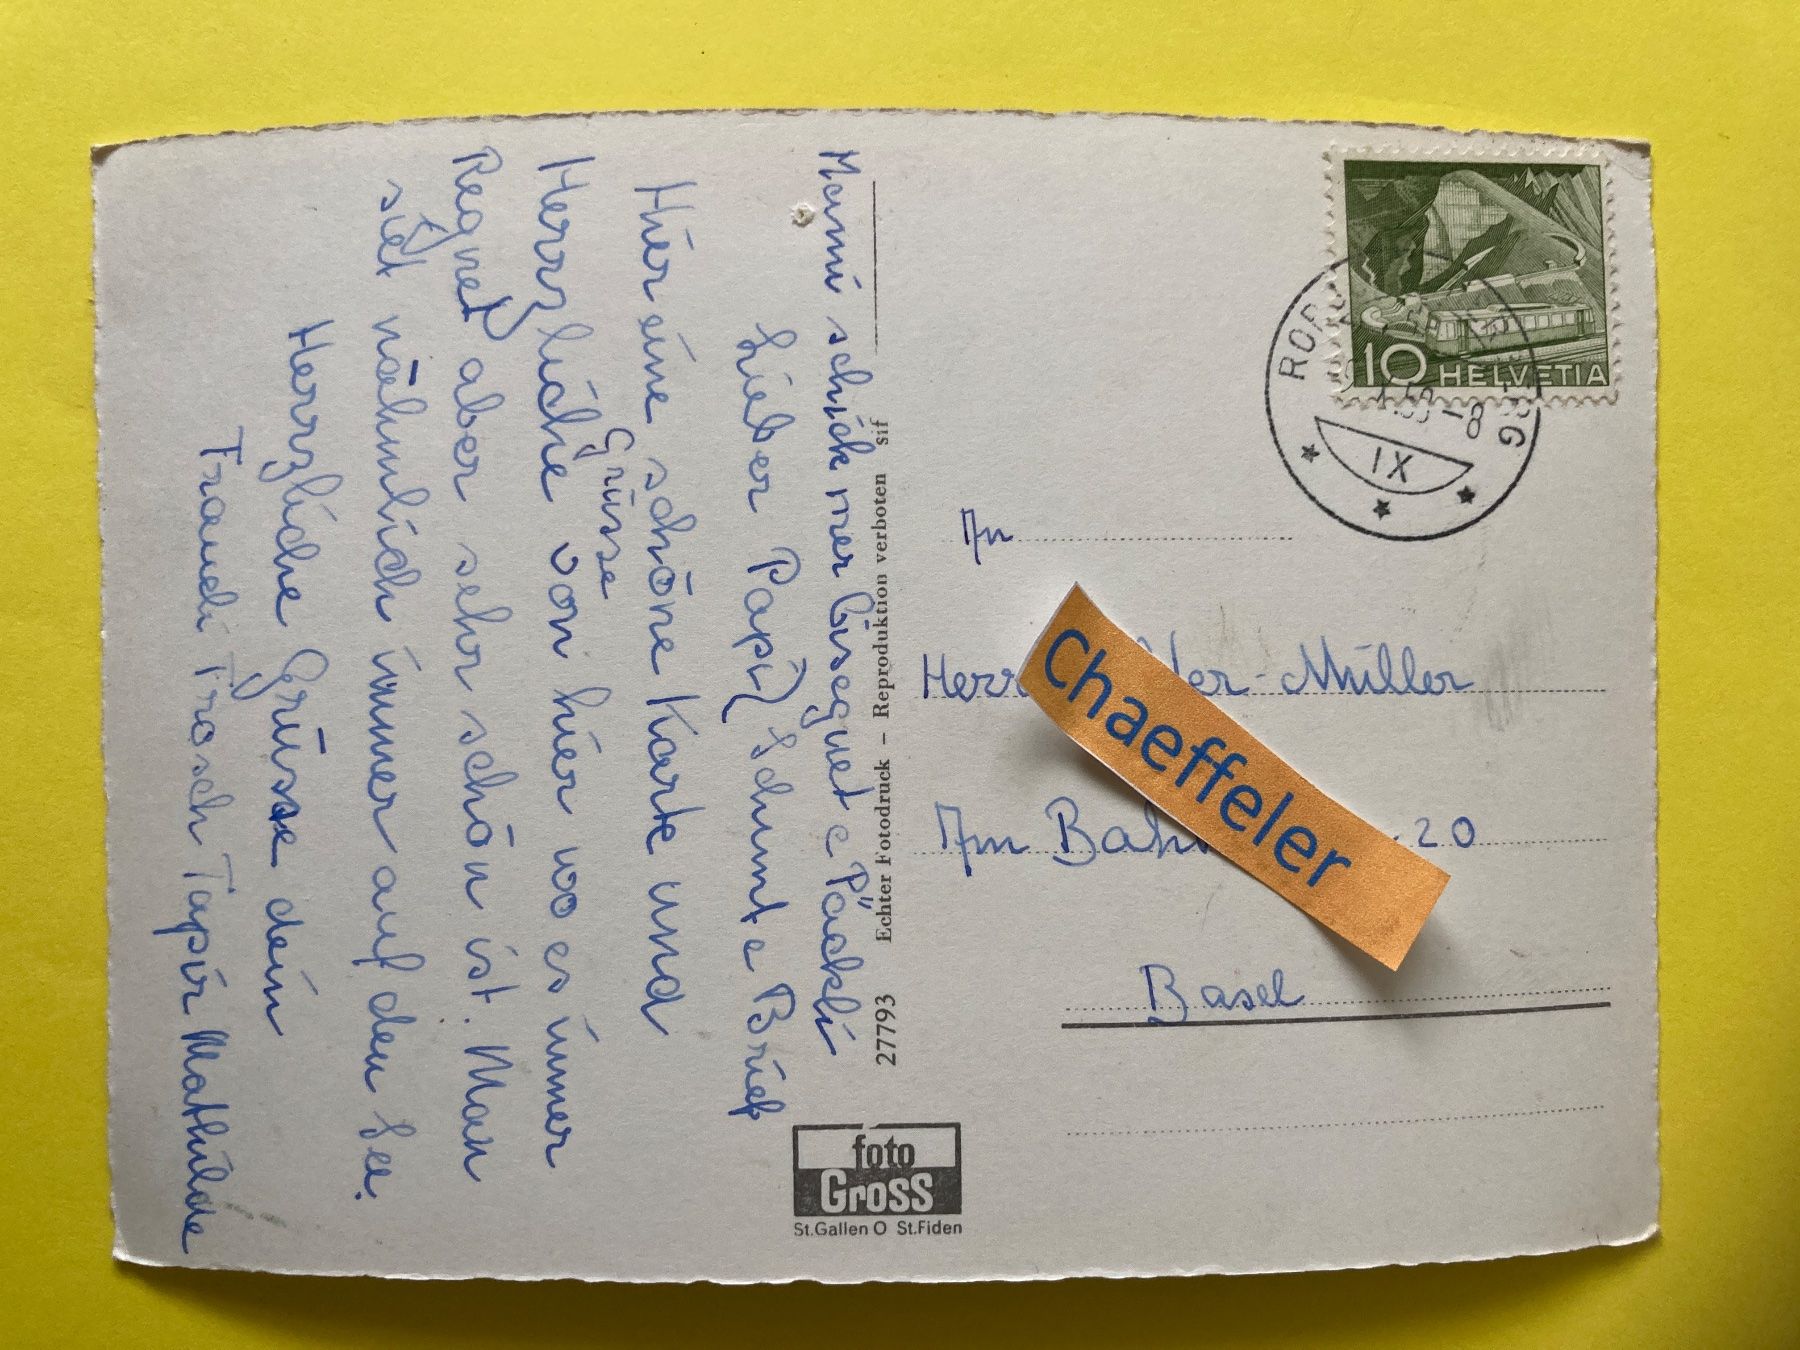 Mammi schick mer Bisquet e Päckli
Lieber Papi! Schumt e Brief
Hier eine schöne Karte und
Herrzliche Grüsse von hier wo es immer
Regnet aber sehr schön ist. Man
siet nähmlich immer auf den See.
Herrzliche Grüsse dein
Traudi Frosch Tapir Mathilde
27793 Echter Fotodruck – Reproduktion verboten sif
foto
Gross
St.Gallen O St.Fiden
10 HELVETIA
IX
An
Herr -Müller
Am 20
Basel
Chaeffeler